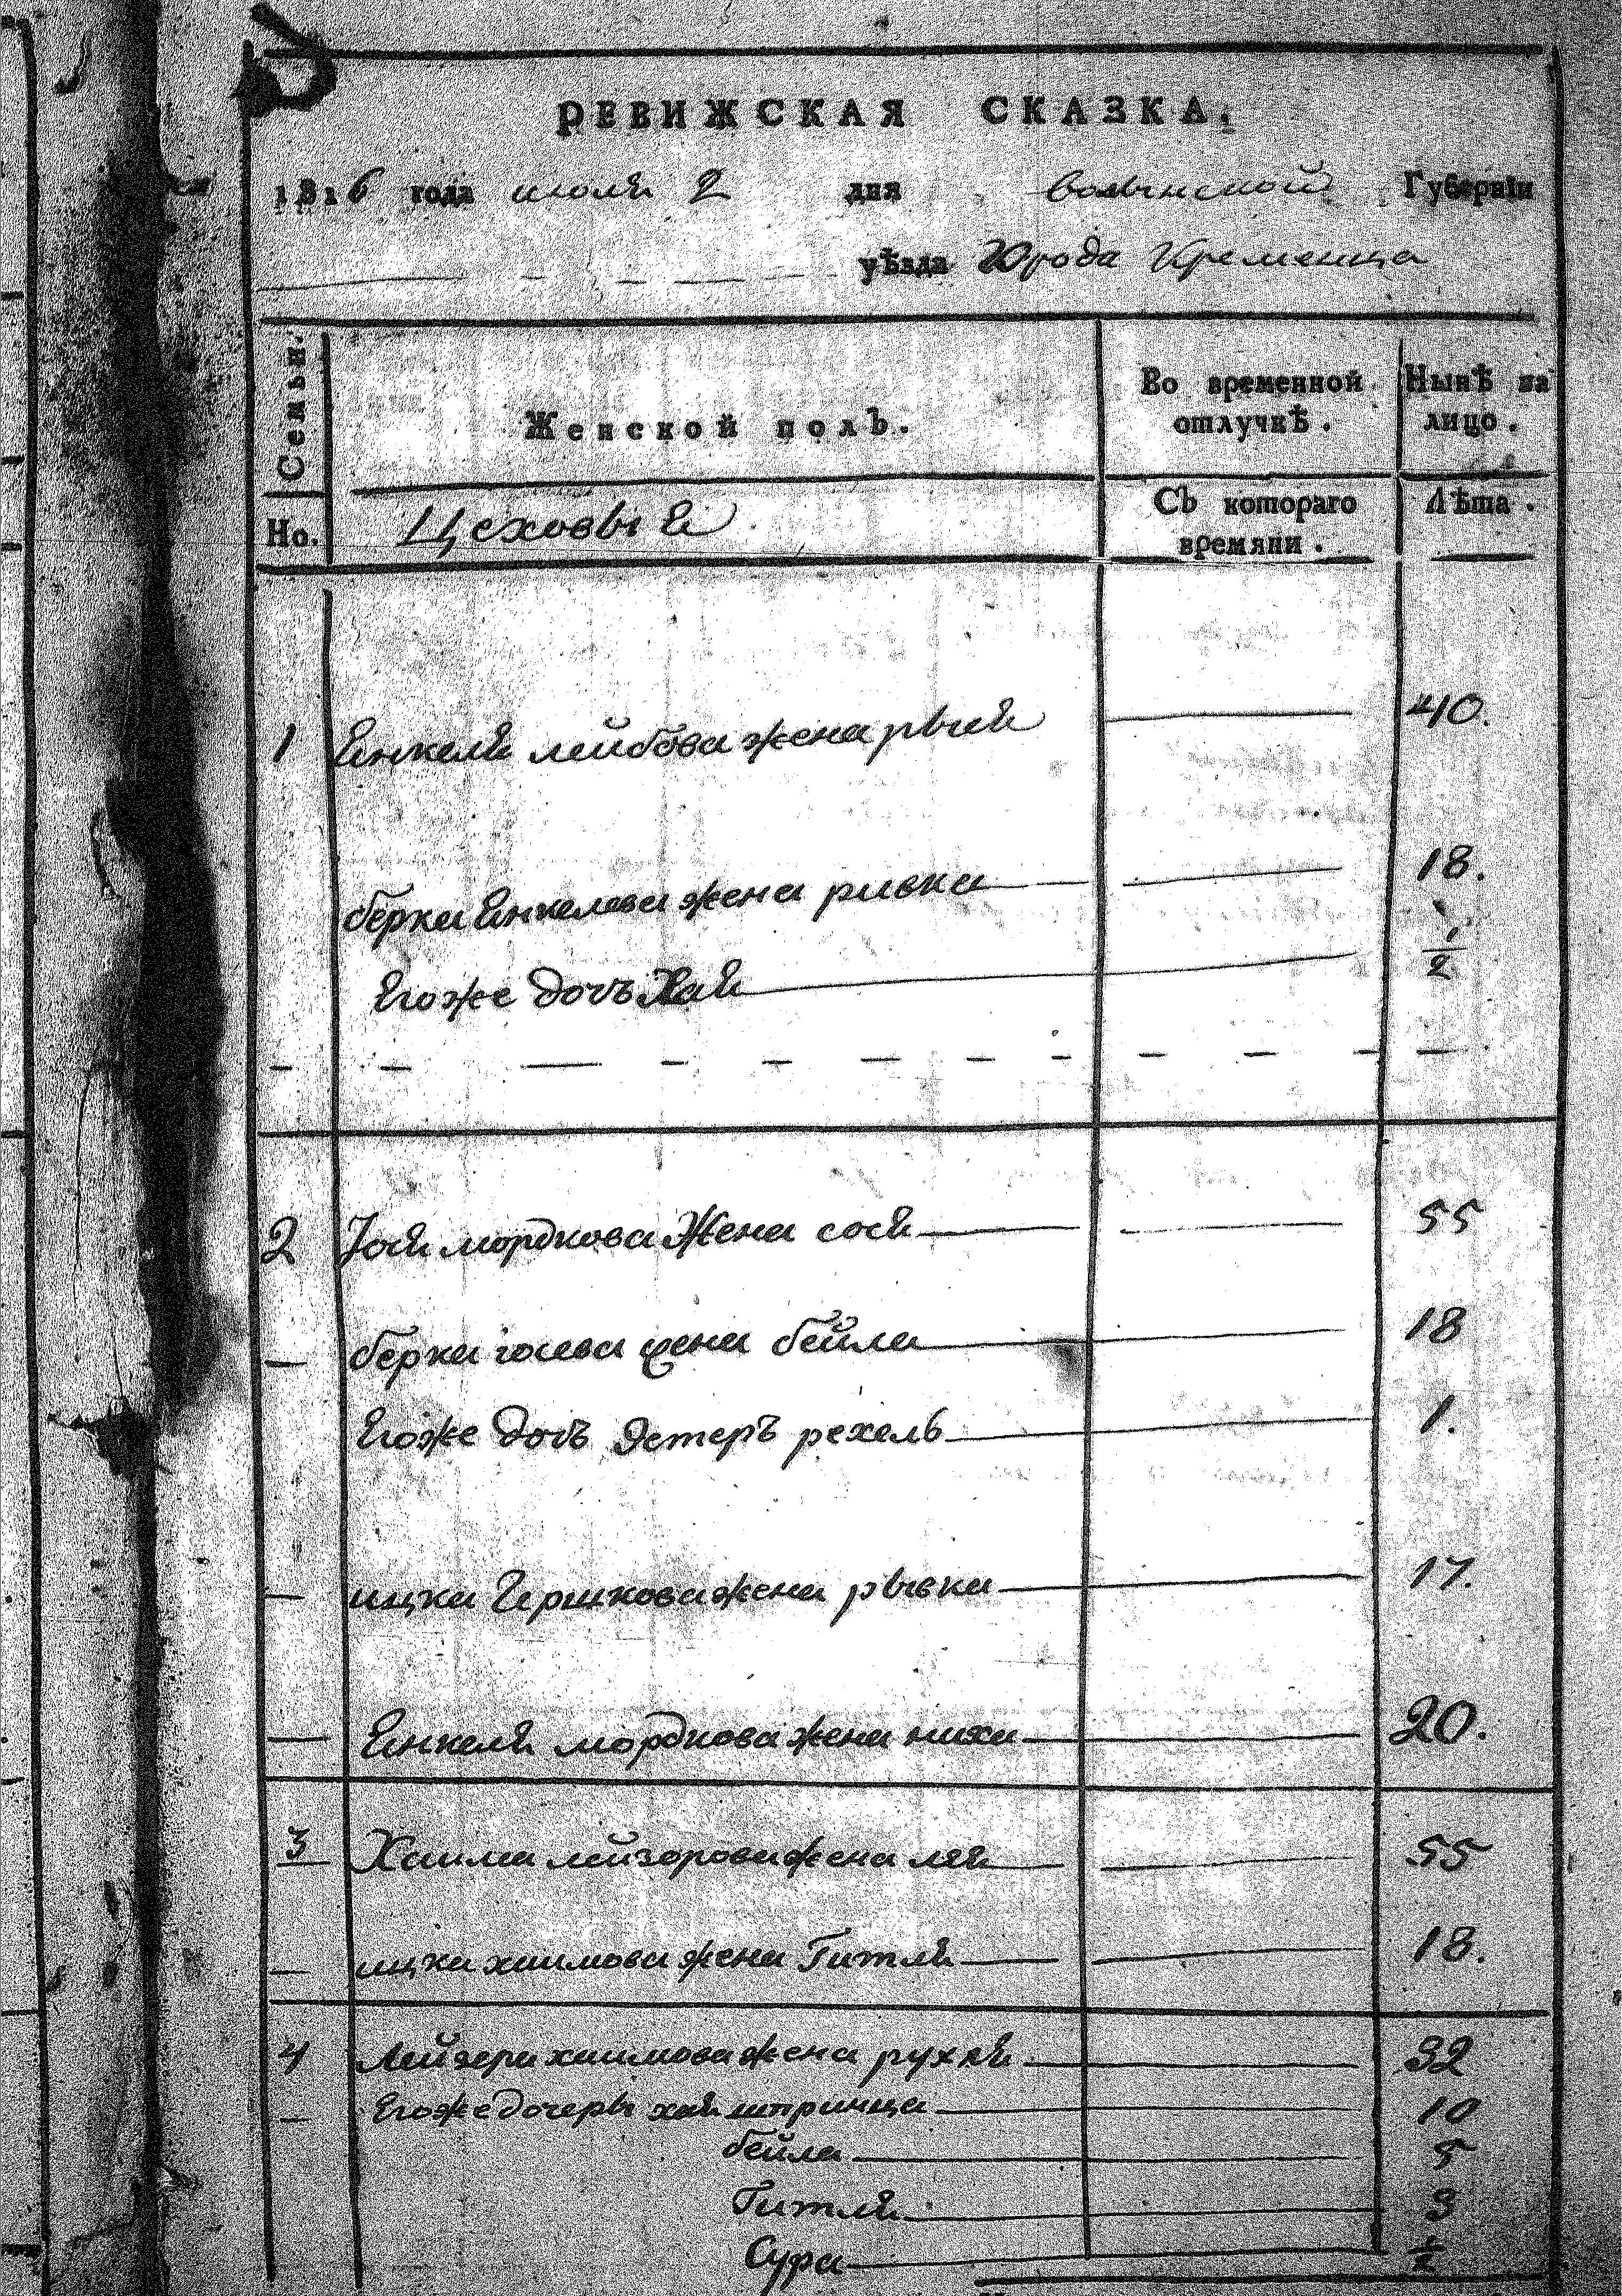 РЕВИЖСКАЯ СКАЗКА.
1816 года июля 2 дня волынской Губерніи
уѣзда Города Кременца
Семьи. Женской полъ. Во временной отлучкѣ. Нынѣ на лицо.
Но. Цеховыя Съ котораго времяни. Лѣта.
1 Янкеля лейбова жена рыся 40.
берка Янкелева жена ривка 18.
Егоже дочъ Хая 1/2
2 Іося мордкова Жена сося 55
берка іосева жена бейла 18
Егоже дочъ Эстеръ рехель 1.
ицка Гершкова жена рывка 17.
Янкеля мордкова жена ниха 20.
3 Хаима лейзорова жена лея 55
ицка хаимова жена Гитля 18.
4 Лейзера хаимова жена рухля 32
Егоже дочеры хая шпринца 10
бейла 5
Гитля 3
Сура 1/2